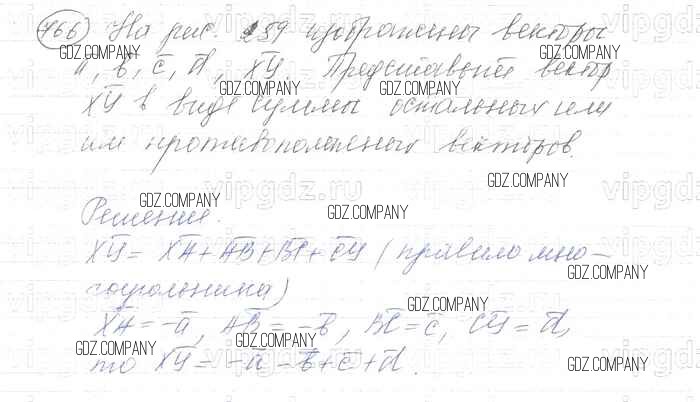 766 На рис. 259 изображены векторы
a̅, b̅, c̅, d̅, X̅Y̅. Представьте вектор
X̅Y̅ в виде суммы остальных или
им противоположных векторов.
Решение.
X̅Y̅ = X̅A̅ + A̅B̅ + B̅C̅ + C̅Y̅ (правило мно-
гоугольника)
X̅A̅ = -a̅, A̅B̅ = -b̅, B̅C̅ = c̅, C̅Y̅ = d̅,
то X̅Y̅ = -a̅ - b̅ + c̅ + d̅.
GDZ.COMPANY
GDZ.COMPANY
GDZ.COMPANY
GDZ.COMPANY
GDZ.COMPANY
GDZ.COMPANY
GDZ.COMPANY
GDZ.COMPANY
GDZ.COMPANY
GDZ.COMPANY
GDZ.COMPANY
vipgdz.ru